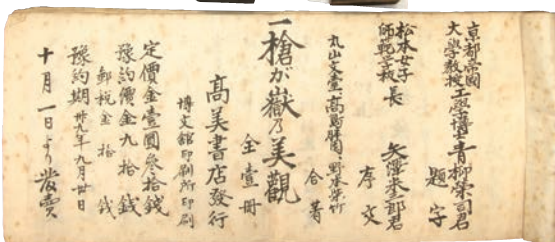 京都帝國
大學教授 工學博士 青柳榮司君 題字
松本女子
師範學校長 矢澤米三郎君 序文
丸山文臺、高島勝園、野本紫竹 合著
一槍が嶽乃美觀 全壹冊
高美書店發行
博文館印刷所印刷
定價金壹圓參拾錢
豫約價金九拾錢
郵税金拾錢
豫約期 卅九年九月卅日
十月一日より發賣